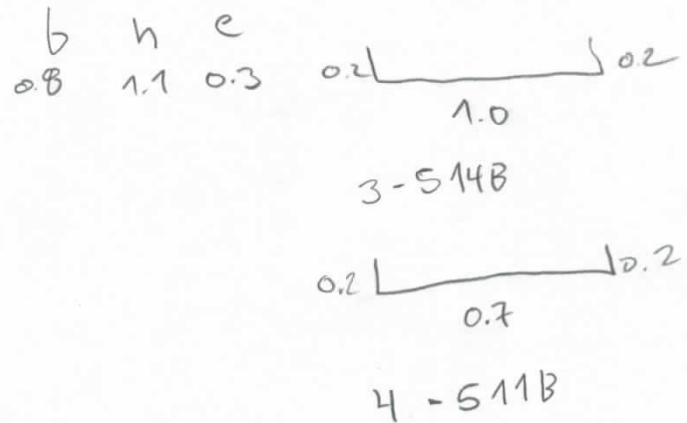 b h e
0.8 1.1 0.3
0.2 0.2
1.0
3-514B
0.2 0.2
0.7
4-511B